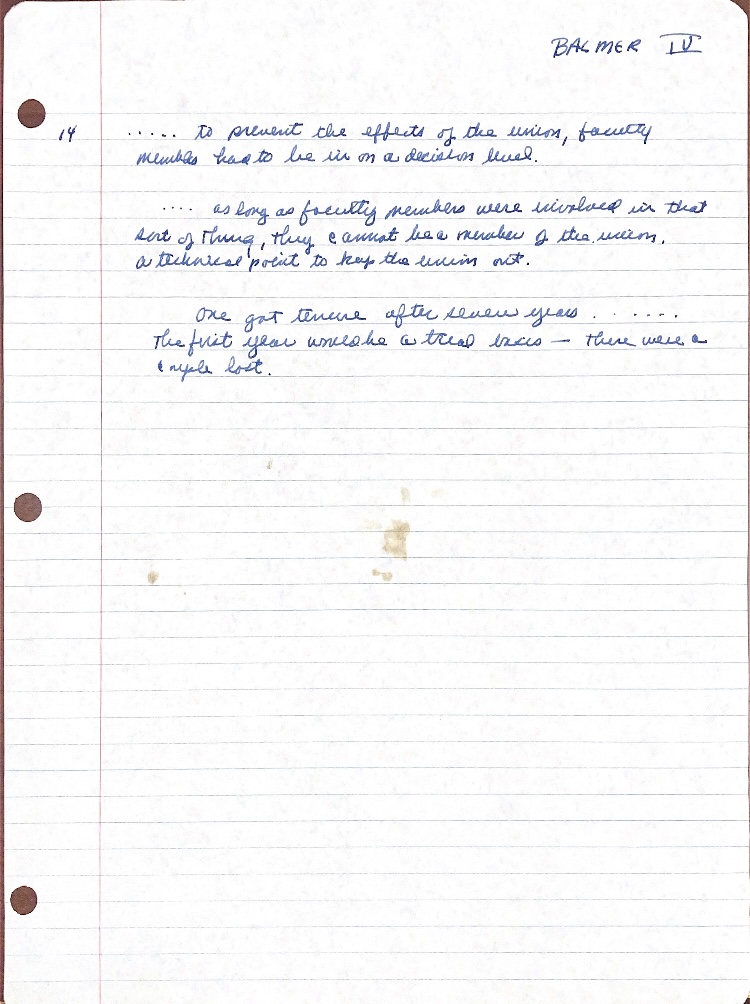 BALMER IV
14 ..... to prevent the effects of the union, faculty
members had to be in on a decision level.
.... as long as faculty members were involved in that
sort of thing, they cannot be a member of the union.
a technical point to keep the union out.
One got tenure after seven years . . . . . .
The first year would be a trial basis — there were a
couple lost.